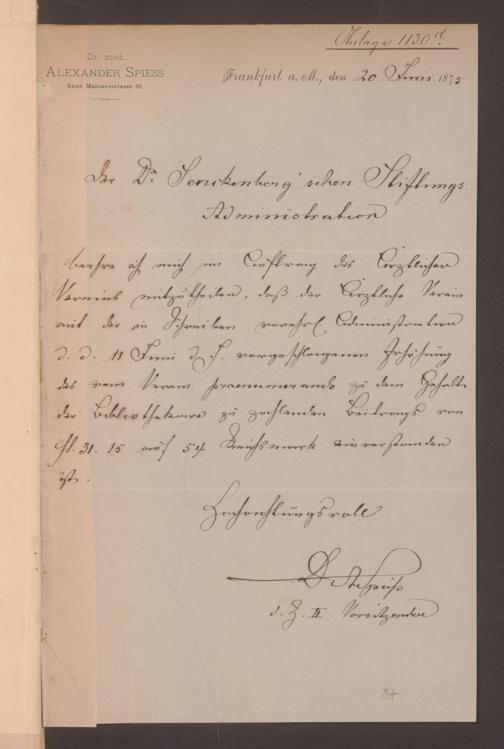 Anlage 1130d.
Dr. med.
ALEXANDER SPIESS
Neue Mainzerstrasse 22.
Frankfurt a. M., den 20 Juni 1875
Der Dr. Senckenberg'schen Stiftungs-
Administration
beehre ich mich im Auftrag des Ärztlichen
Vereins mitzutheilen, daß der Ärztliche Verein
mit der in Schreiben verehrl. Administration
d. d. 11 Juni d. J. vorgeschlagenen Erhöhung
des vom Verein praenumerando zu dem Gehalte
der Bibliothekare zu zahlenden Beitrags von
fl. 31. 15 auf 54 Reichsmark einverstanden
ist.
Hochachtungsvoll
Dr A Spiess
d. Z. II. Vorsitzender
87